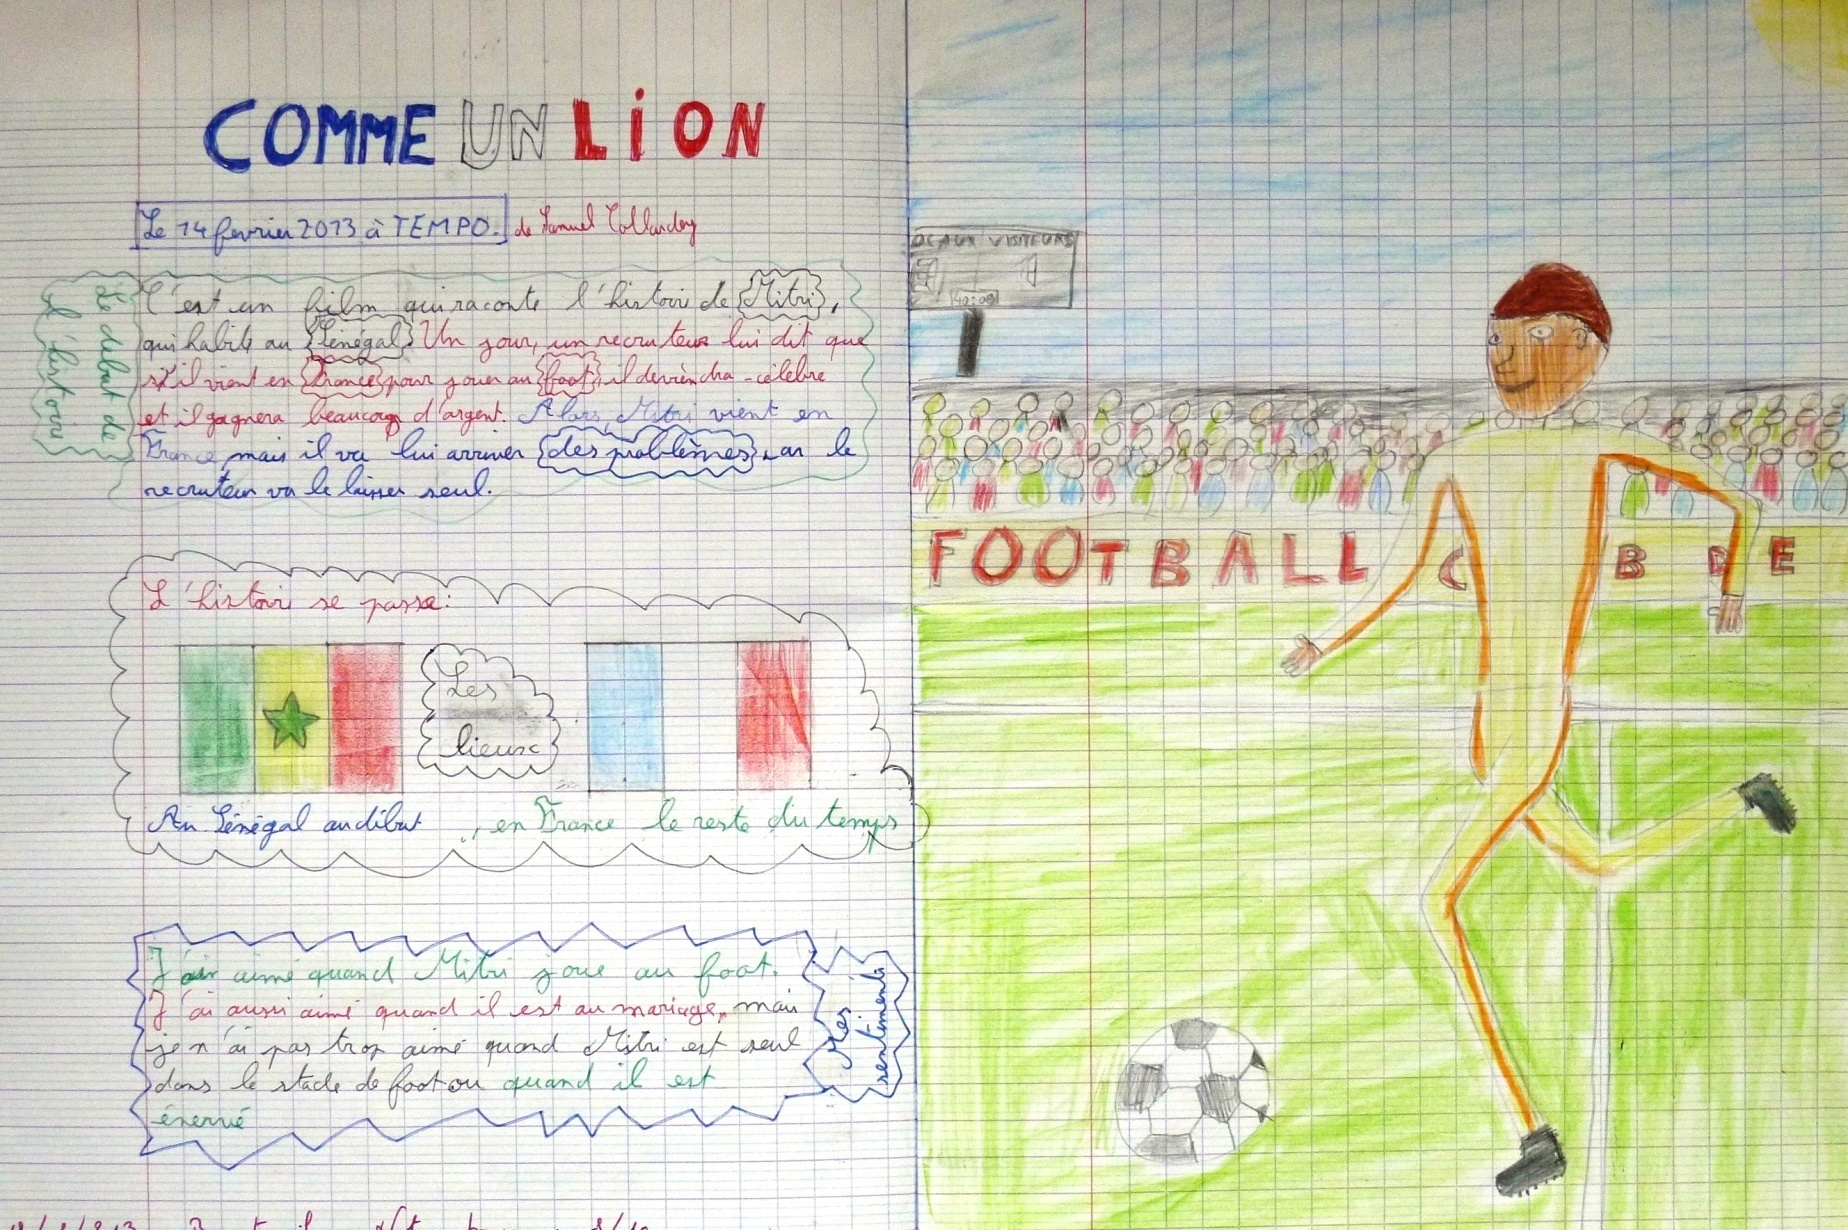 COMME UN LION
Le 14 fevrier 2013 à TEMPO. de Samuel Collardey
Le debut de
l'histoire
C'est un film qui raconte l'histoire de Mitri,
qui habite au Sénégal. Un jour, un recruteur lui dit que
s'il vient en France pour jouer au foot, il deviendra célèbre
et il gagnera beaucoup d'argent. Alors, Mitri vient en
France, mais il va lui arriver des problèmes, car le
recruteur va le laisser seul.
L'histoire se passe:
Les
lieux
Au Sénégal au début, en France le reste du temps
J'ai aimé quand Mitri joue au foot.
J'ai aussi aimé quand il est au mariage, mais
je n'ai pas trop aimé quand Mitri est seul
dans le stade de foot ou quand il est
énervé
Mes
sentiments
OCAUX VISITEURS
FOOTBALL C B D E